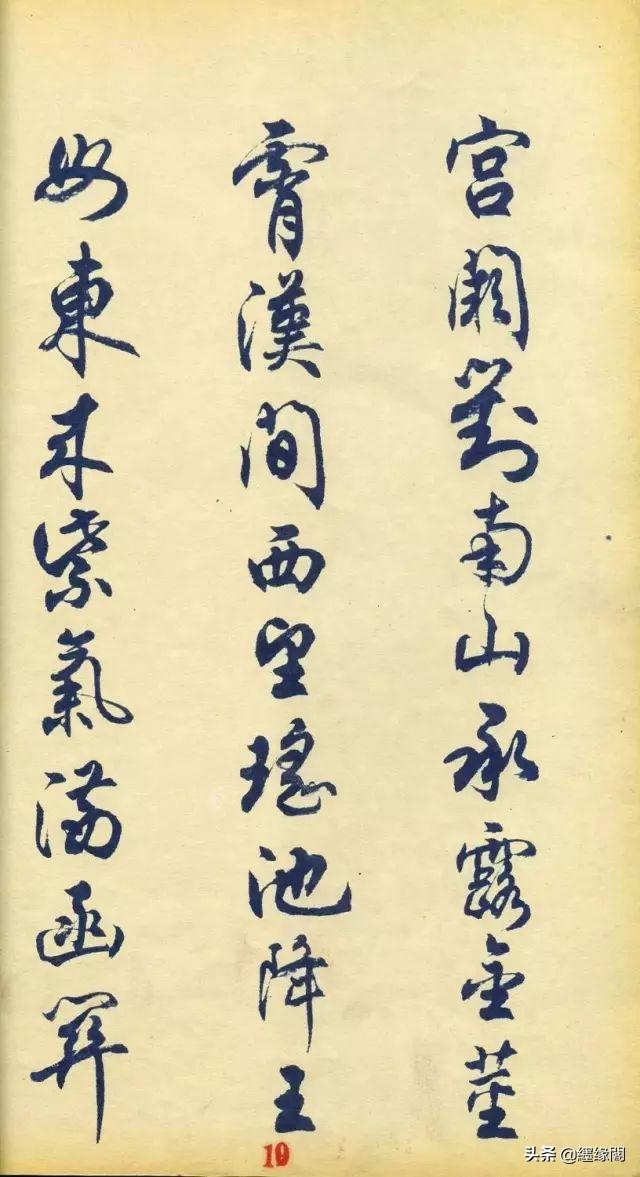 宫闕對南山承露金莖
霄漢間西望瑤池降王
母東来紫氣滿函関
19
头条 @纒缘閣